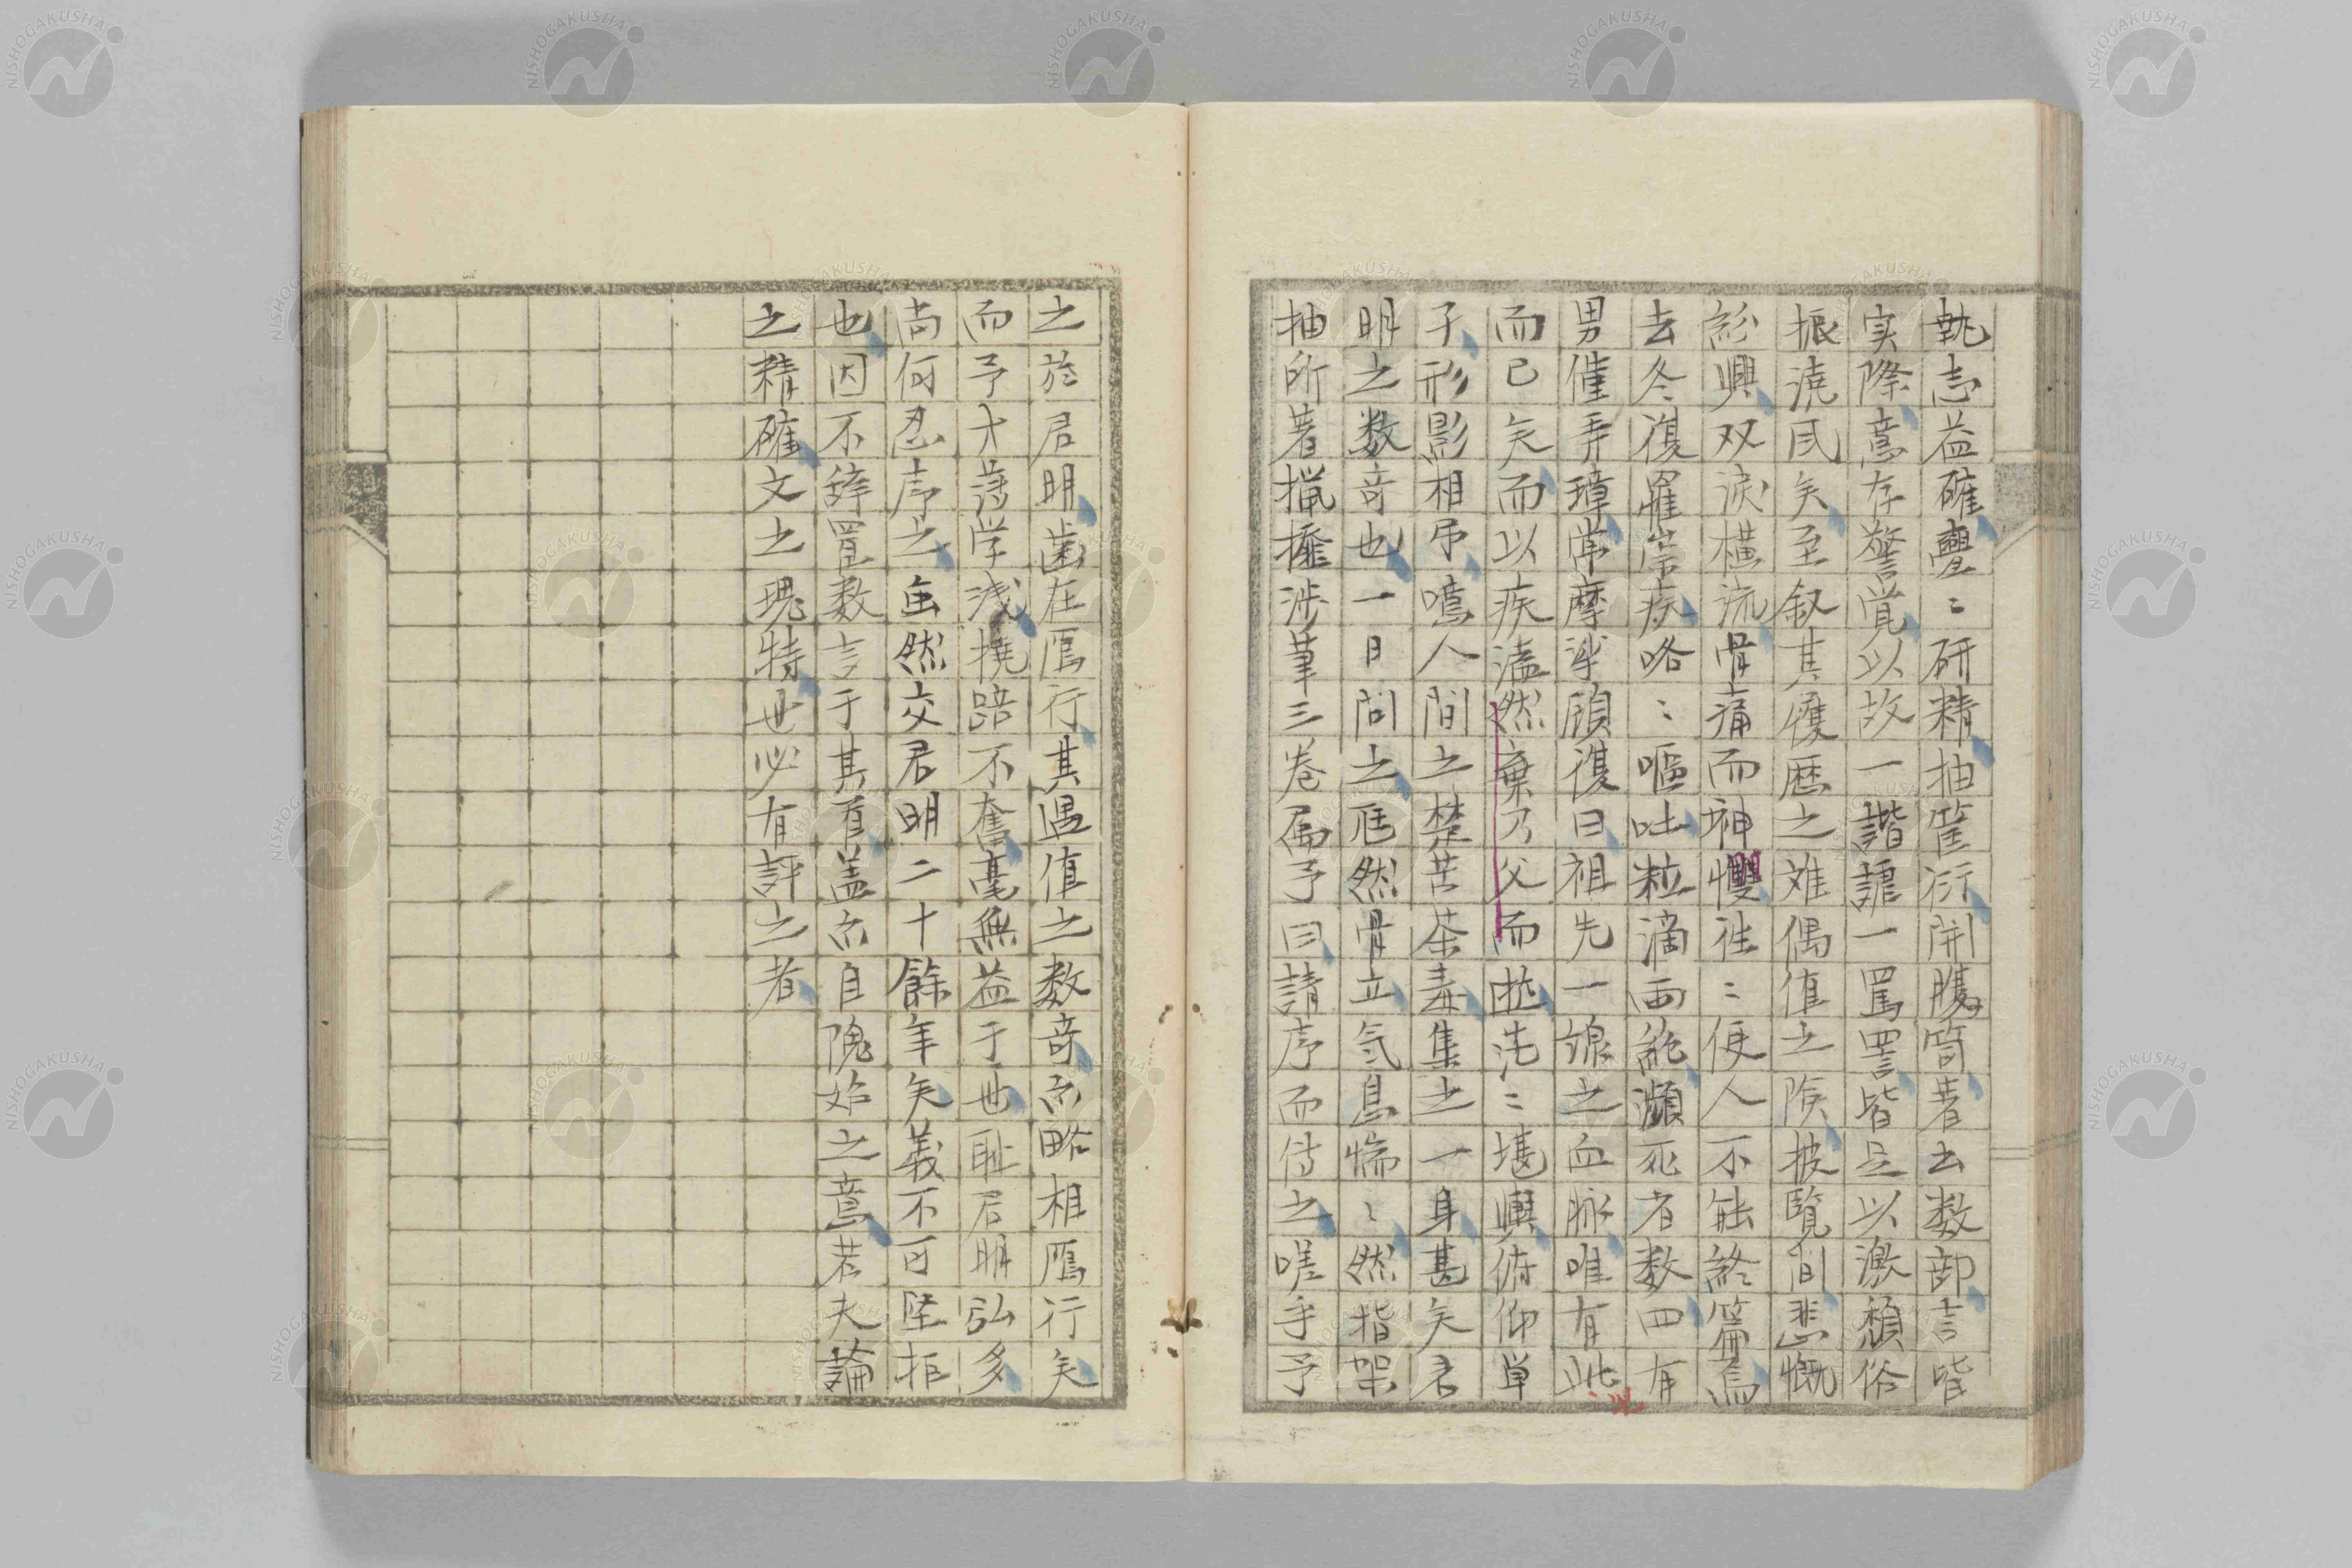 執志益確亹〻研精抽筐衍開腹笥著去数部言皆
実際意存警覚以故一諧謔一罵詈皆足以激頽俗
振澆風矣至叙其履歴之難偶値之険披覧間悲慨
紛興双涙横流骨痛而神惘往〻便人不能終篇焉
去冬復罹常疾咯〻嘔吐粒滴両絶瀕死者数四有
男催弄璋常摩挲顧復曰祖先一線之血脈唯有此
而已矣而以疾溘然棄乃父而逝茫〻堪輿俯仰単
子形影相弔噫人間之楚苦荼毒集之一身甚矣君
明之数奇也一日問之尫然骨立気息惴〻然指架
抽所著猟攤渉筆三巻属予曰請序而侍之嗟乎予
之於君明歯在鴈行其遇値之数奇而略相鴈行矣
而予才薄学浅撓踣不奮毫無益于世恥君明弘多
尚何忍序之雖然交君明二十餘年矣義不可堅拒
也因不辞置数言于其首盖亦自隗始之意若夫論
之精確文之瑰特世必有評之者
NISHOGAKUSHA